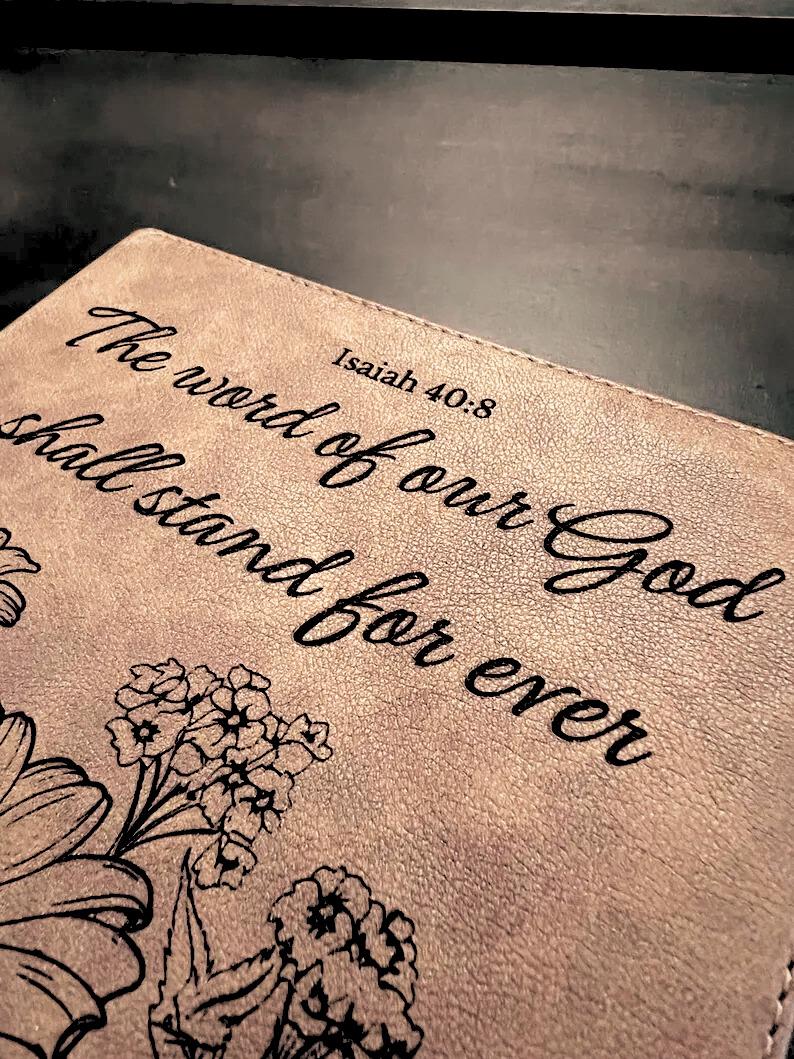 Isaiah 40:8
The word of our God
shall stand for ever